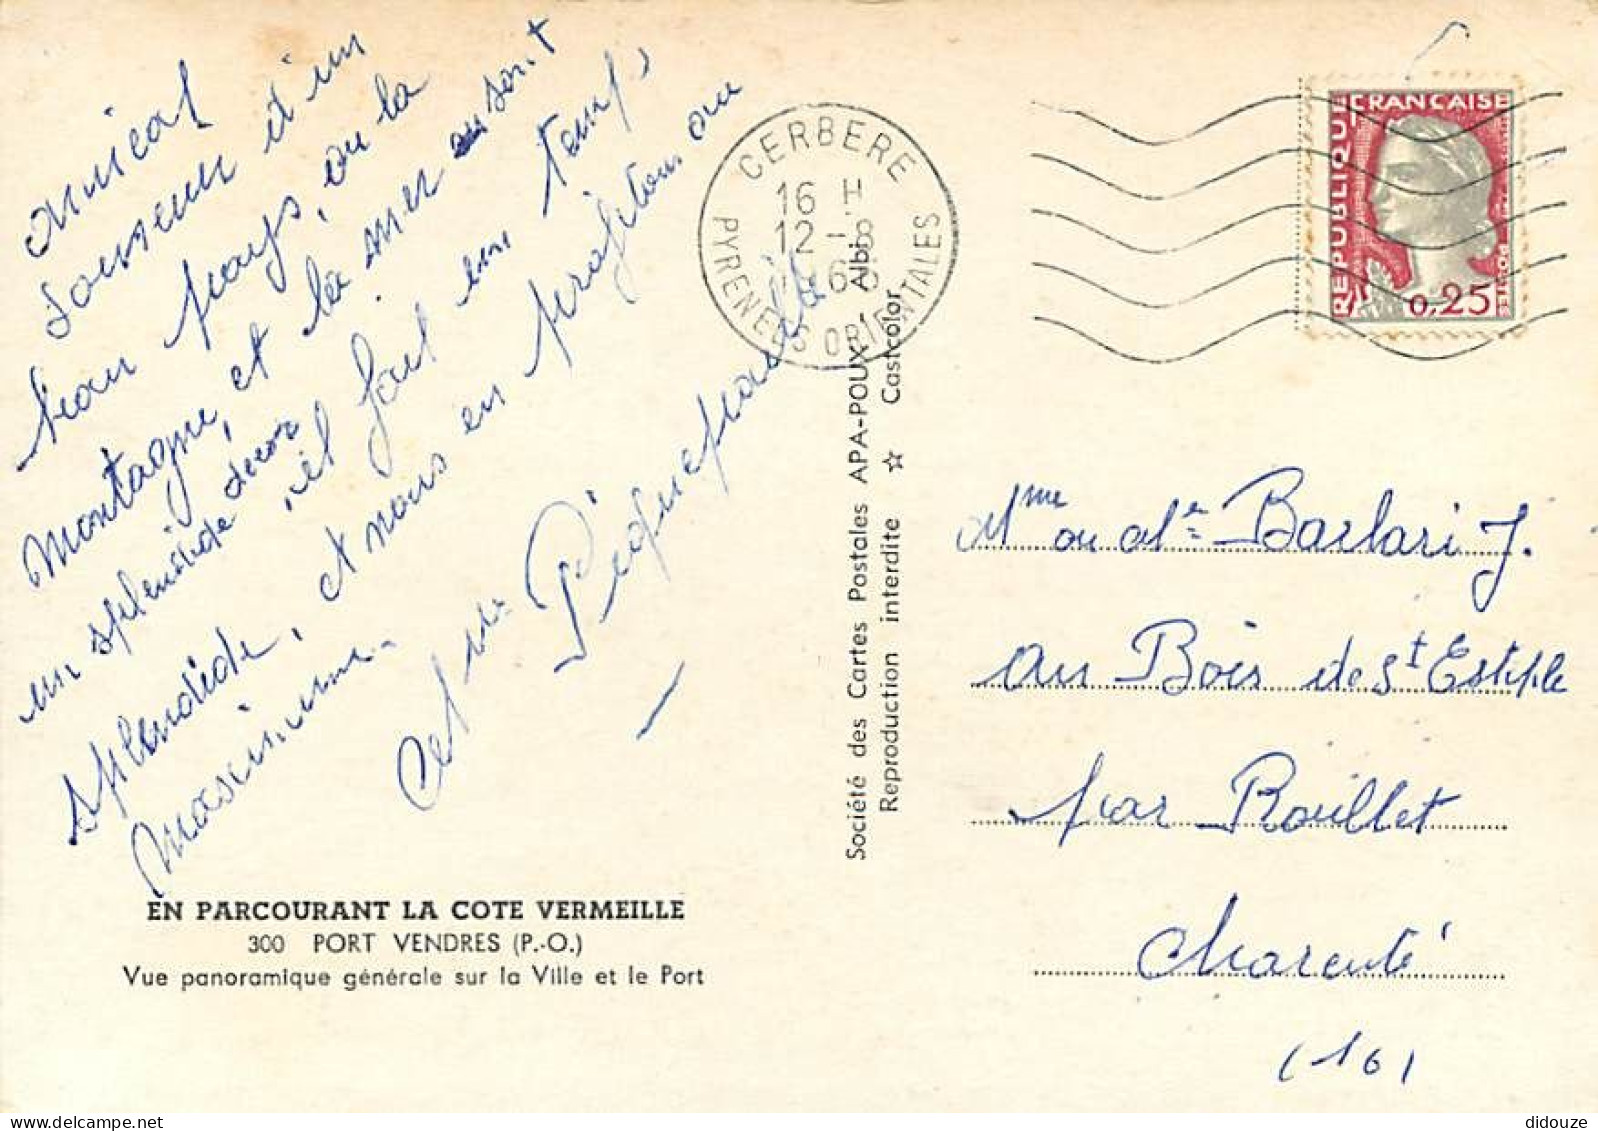 amical
souvenir d'un
beau pays, ou la
montagne, et la mer sont
un splendide decor
, il fait un temps
splendide, et nous en profitons au
maximum.
EN PARCOURANT LA COTE VERMEILLE
300 PORT VENDRES (P.-O.)
Vue panoramique générale sur la Ville et le Port
CERBERE
16 H
12-8
PYRENEES ORIENTALES
Société des Cartes Postales APA-POUX - Albi
Reproduction interdite ☆ Castcolor
REPUBLIQUE FRANÇAISE
POSTES
0,25
Mme ou Mr Barlari J.
au Bois de St Estèphe
par Roullet
Charente
(16)
didouze